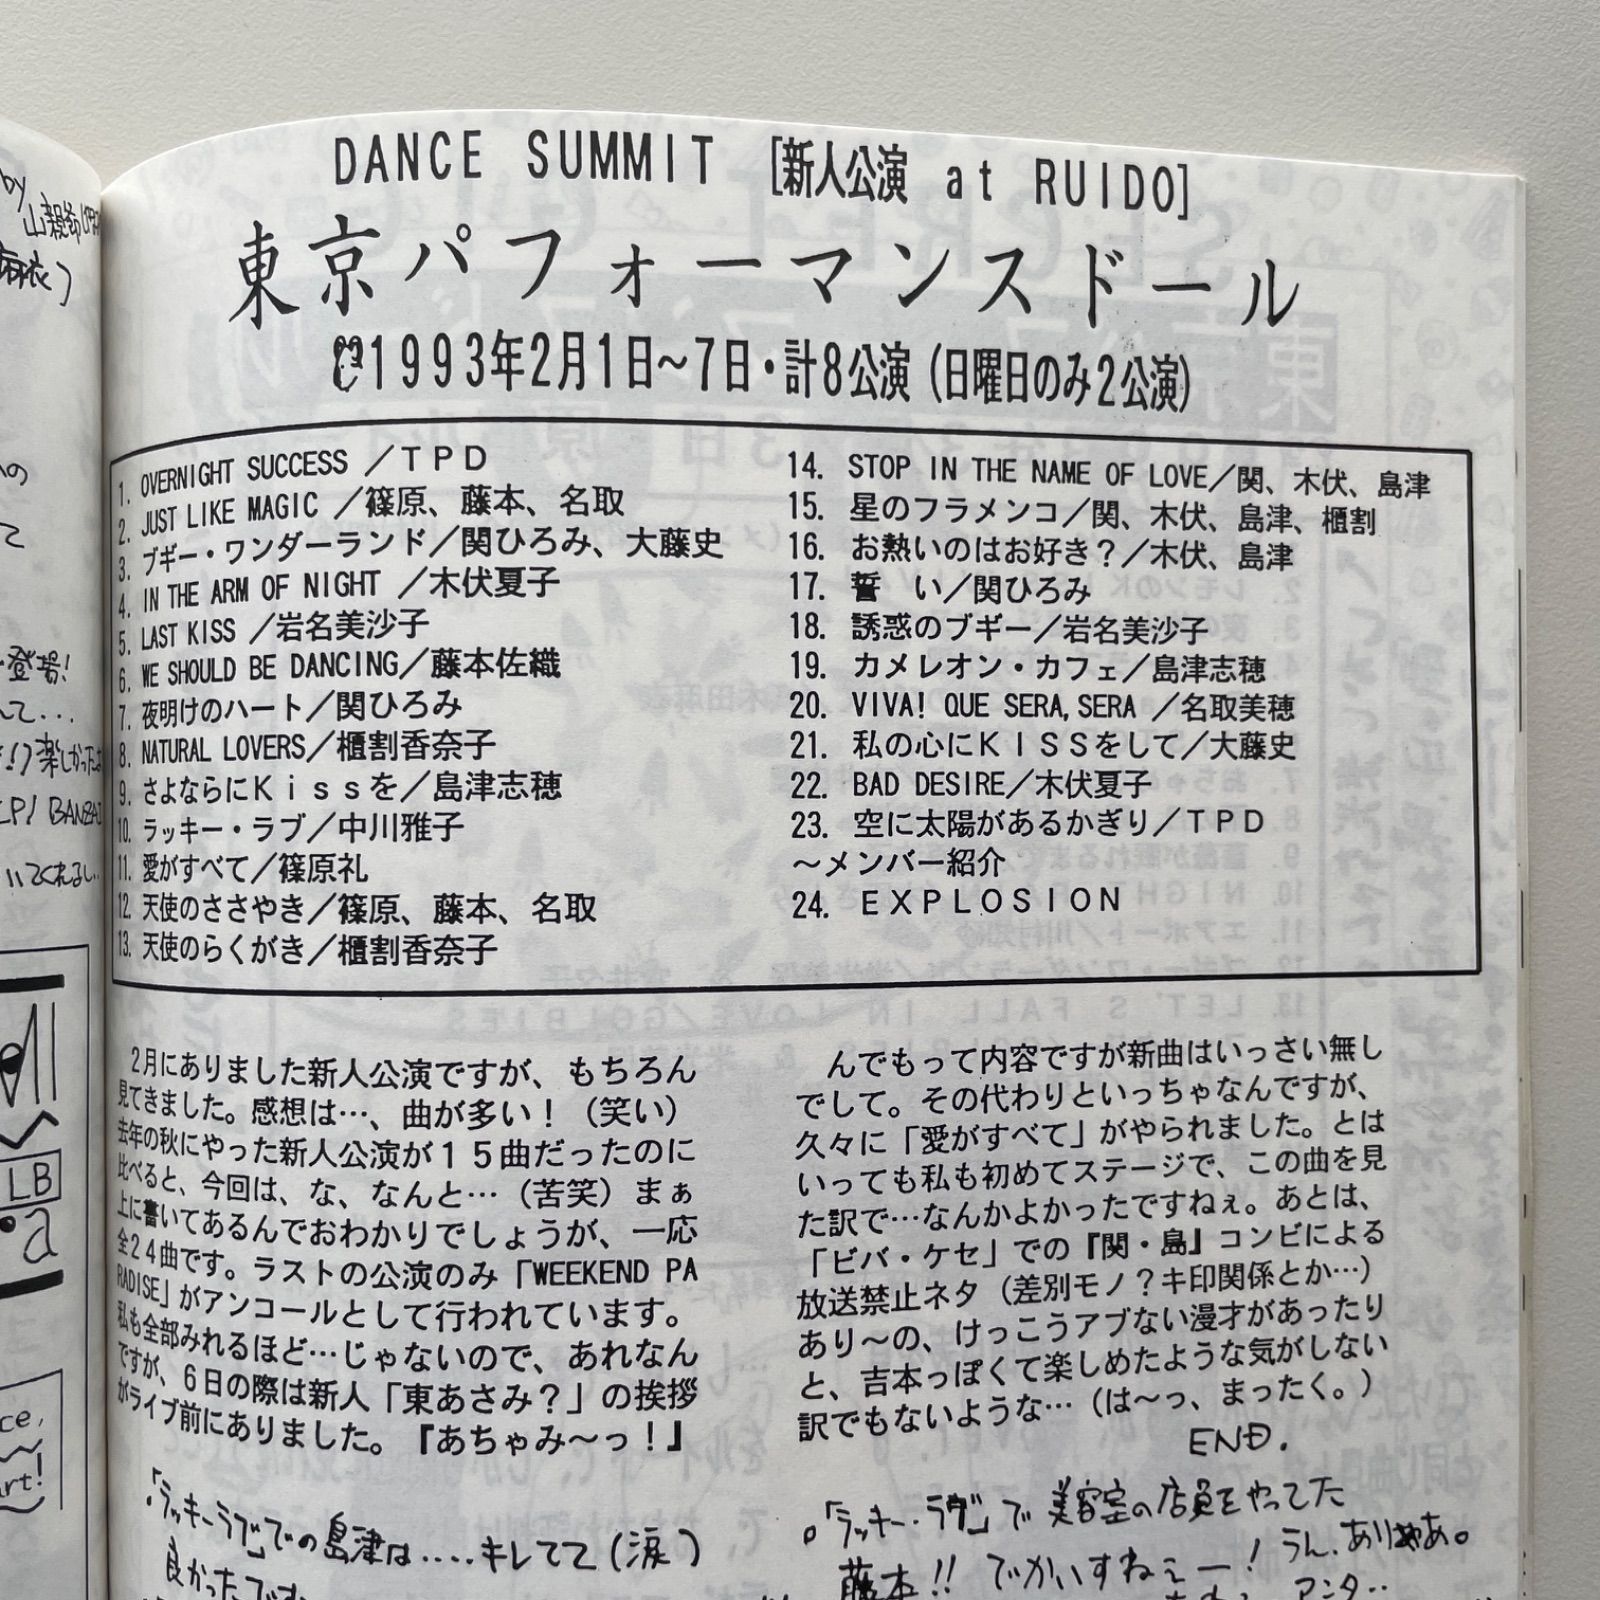 by
DANCE SUMMIT [新人公演 at RUIDO]
東京パフォーマンスドール
1993年2月1日〜7日・計8公演(日曜日のみ2公演)
1. OVERNIGHT SUCCESS／TPD
2. JUST LIKE MAGIC／篠原、藤本、名取
3. ブギー・ワンダーランド／関ひろみ、大藤史
4. IN THE ARM OF NIGHT／木伏夏子
5. LAST KISS／岩名美沙子
6. WE SHOULD BE DANCING／藤本佐織
7. 夜明けのハート／関ひろみ
8. NATURAL LOVERS／櫃割香奈子
9. さよならにKissを／島津志穂
10. ラッキー・ラブ／中川雅子
11. 愛がすべて／篠原礼
12. 天使のささやき／篠原、藤本、名取
13. 天使のらくがき／櫃割香奈子
14. STOP IN THE NAME OF LOVE／関、木伏、島津
15. 星のフラメンコ／関、木伏、島津、櫃割
16. お熱いのはお好き？／木伏、島津
17. 誓　い／関ひろみ
18. 誘惑のブギー／岩名美沙子
19. カメレオン・カフェ／島津志穂
20. VIVA! QUE SERA,SERA／名取美穂
21. 私の心にKISSをして／大藤史
22. BAD DESIRE／木伏夏子
23. 空に太陽があるかぎり／TPD
〜メンバー紹介
24. EXPLOSION
2月にありました新人公演ですが、もちろん
見てきました。感想は…、曲が多い！（笑い）
去年の秋にやった新人公演が15曲だったのに
比べると、今回は、な、なんと…（苦笑）まぁ
上に書いてあるんでおわかりでしょうが、一応
全24曲です。ラストの公演のみ「WEEKEND PA
RADISE」がアンコールとして行われています。
私も全部みれるほど…じゃないので、あれなん
ですが、6日の際は新人「東あさみ？」の挨拶
がライブ前にありました。『あちゃみ〜っ！』
んでもって内容ですが新曲はいっさい無し
でして。その代わりといっちゃなんですが、
久々に「愛がすべて」がやられました。とは
いっても私も初めてステージで、この曲を見
た訳で…なんかよかったですねぇ。あとは、
「ビバ・ケセ」での『関・島』コンビによる
放送禁止ネタ（差別モノ？キ印関係とか…）
あり〜の、けっこうアブない漫才があったり
と、吉本っぽくて楽しめたような気がしない
訳でもないような…（は〜っ、まったく。）
END.
「ラッキーラブ」での島津は....キレてて(涙)
良かったです
「ラッキー・ラヴ」で美容室の店員をやってた
藤本!! でかいすねぇー! うん、ありゃあ。
アンタ..
登場!
楽しかった
BANZAI
LB
a
ce,
art!